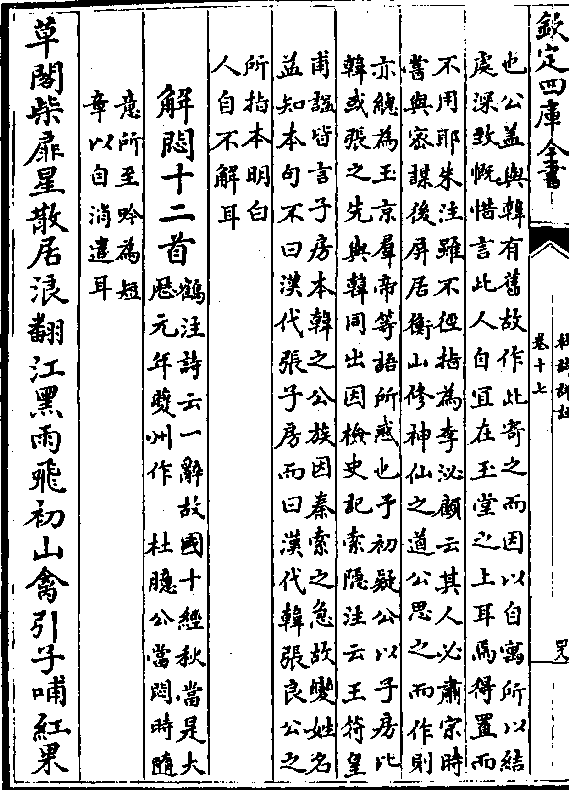 欽定四庫全書
杜詩詳註
卷十七
四八
也公蓋與韓有舊故作此寄之而因以自寓所以結
處深致慨惜言此人自宜在玉堂之上耳焉得置而
不用耶朱注雖不徑指為李泌顧云其人必肅宗時
嘗與密謀後屏居衡山修神仙之道公思之而作則
亦總為玉京羣帝等語所惑也予初疑公以子房比
韓或張之先與韓同出因檢史記索隱注云王符皇
甫謐皆言子房本韓之公族因秦索之急故變姓名
益知本句不曰漢代張子房而曰漢代韓張良公之
所指本明白
人自不解耳
解悶十二首
鶴注詩云一辭故國十經秋當是大
厯元年夔州作 杜臆公當悶時隨
意所至吟為短
章以自消遣耳
草閣柴扉星散居浪翻江黑雨飛初山禽引子哺紅果